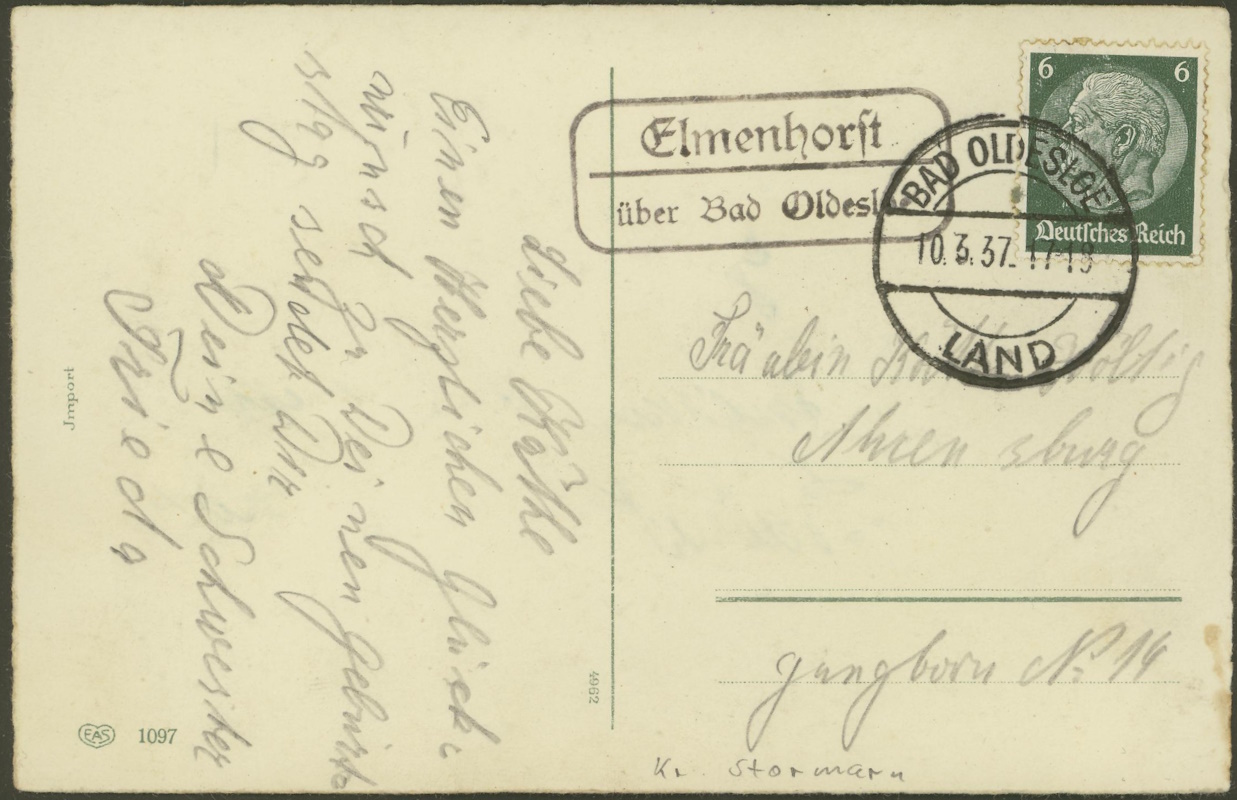 Liebe Käthe
Einen Herzlichen Glück-
wunsch zu Deinen Geburts
tag sendet Dir
Deine Schwester
Frieda
Import
EAS 1097
4962
Elmenhorst
über Bad Oldesl
BAD OLDESLOE
10.3.37.17-18
LAND
6 6
Deutsches Reich
Fräulein
Ahrensburg
Jungborn No 14
Kr. Stormarn